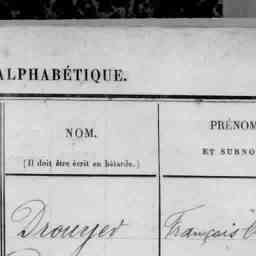 ALPHABÉTIQUE.
NOM.
(Il doit être écrit en bâtarde.)
PRÉNOM
ET SURNO
Drouyer
François